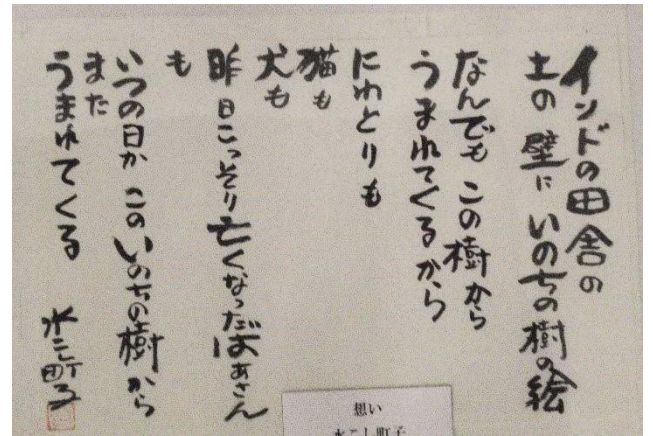 インドの田舎の
土の壁に いのちの樹の絵
なんでも この樹から
うまれてくるから
にわとりも
猫も
犬も
昨日こっそり亡くなったばあさん
も
いつの日か このいのちの樹から
また
うまれてくる
水こし町子
想い
水こし町子